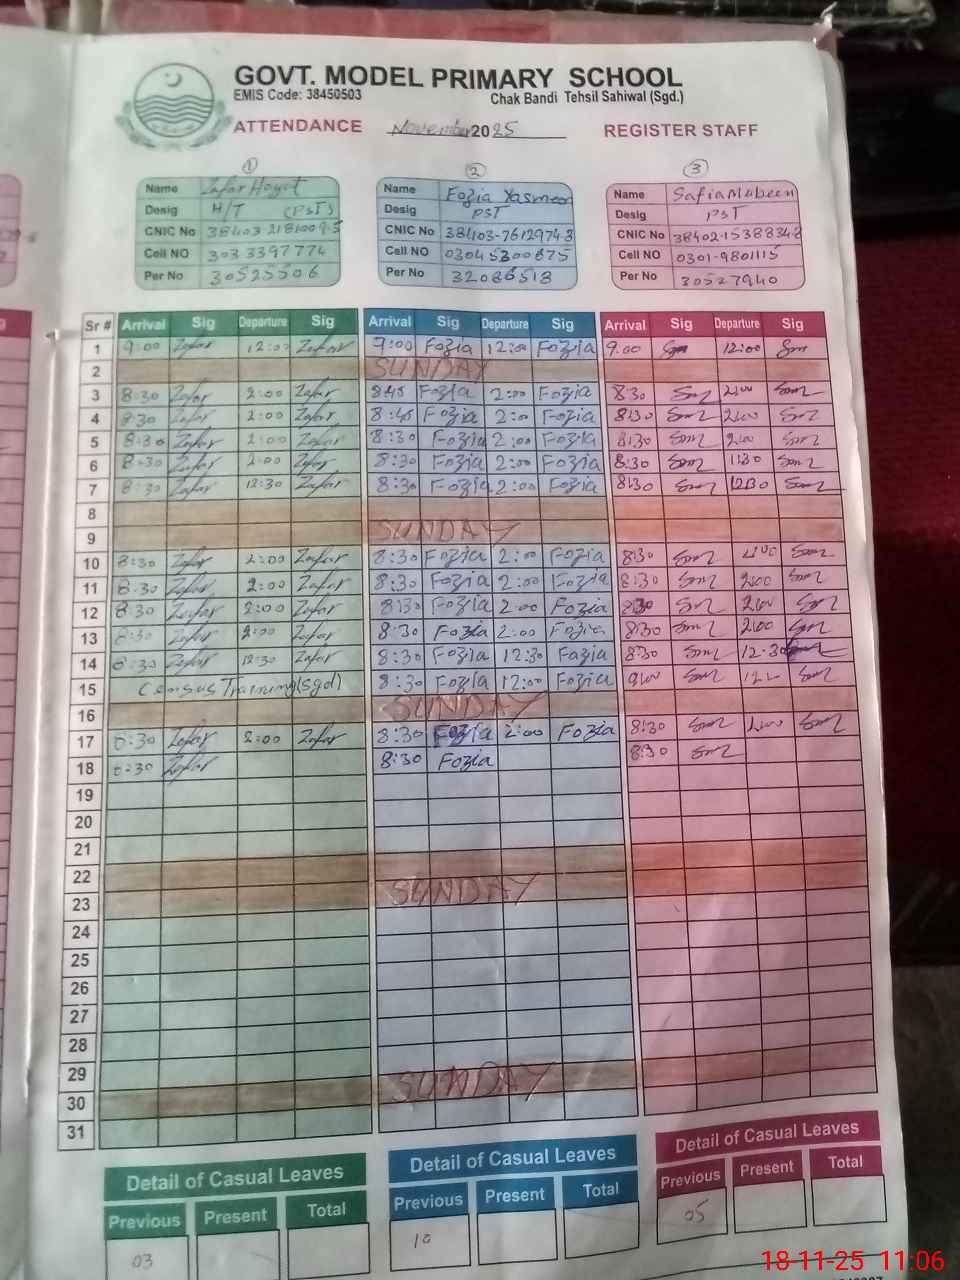 GOVT. MODEL PRIMARY SCHOOL
EMIS Code: 38450503 Chak Bandi Tehsil Sahiwal (Sgd.)
ATTENDANCE November 2025 REGISTER STAFF
1 2 3
Name Zafar Hayat Name Fozia Yasmeen Name Safia Mubeen
Desig H/T (PST) Desig PST Desig PST
CNIC No CNIC No 38403-7612974-8 CNIC No
Cell NO 303 3397774 Cell NO 03045300675 Cell NO 0301-9801115
Per No 30525506 Per No 32086513 Per No 30527940
Sr # Arrival Sig Departure Sig Arrival Sig Departure Sig Arrival Sig Departure Sig
1 9:00 Zafar 12:00 Zafar 9:00 Fozia 12:00 Fozia 9.00 12:00
2 SUNDAY
3 8:30 Zafar 2:00 Zafar 8:45 Fozia 2:00 Fozia 8:30 2:00
4 8:30 Zafar 2:00 Zafar 8:45 Fozia 2:00 Fozia 8:30 2:00
5 8:30 Zafar 2:00 Zafar 8:30 Fozia 2:00 Fozia 8:30 2:00
6 8:30 Zafar 2:00 Zafar 8:30 Fozia 2:00 Fozia 8:30
7 8:30 Zafar 12:30 Zafar 8:30 Fozia 2:00 Fozia 8:30 12:30
8
9 SUNDAY
10 8:30 Zafar 2:00 Zafar 8:30 Fozia 2:00 Fozia 8:30 2:00
11 8:30 Zafar 2:00 Zafar 8:30 Fozia 2:00 Fozia 8:30 2:00
12 8:30 Zafar 2:00 Zafar 8:30 Fozia 2:00 Fozia 8:30 2:00
13 8:30 Zafar 2:00 Zafar 8:30 Fozia 2:00 Fozia 8:30 2:00
14 8:30 Zafar 12:30 Zafar 8:30 Fozia 12:30 Fozia 8:30 12:30
15 Census Training (Sgd) 8:30 Fozia 12:00 Fozia
16 SUNDAY
17 8:30 Zafar 2:00 Zafar 8:30 Fozia 2:00 Fozia 8:30 2:00
18 8:30 Zafar 8:30 Fozia 8:30
19
20
21
22
23 SUNDAY
24
25
26
27
28
29
30 SUNDAY
31
Detail of Casual Leaves Detail of Casual Leaves Detail of Casual Leaves
Previous Present Total Previous Present Total Previous Present Total
03 10 05
18-11-25 11:06